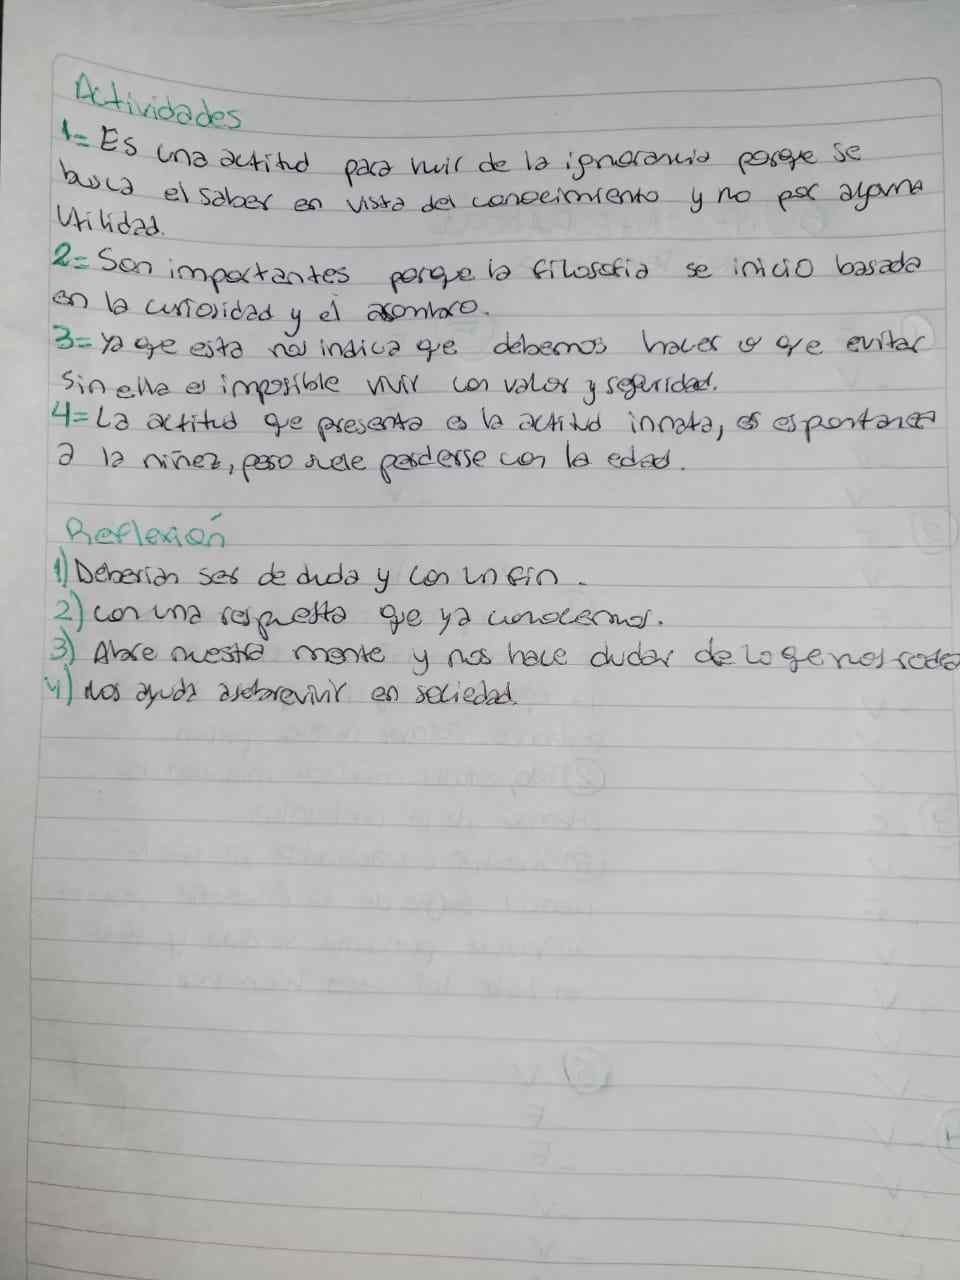 Actividades
1= Es una actitud para huir de la ignorancia porque se
busca el saber en vista del conocimiento y no por alguna
Utilidad.
2= Son importantes porque la filosofia se inicio basada
en la curiosidad y el asombro.
3= Ya que esta nos indica que debemos hacer o que evitar
Sin ella es imposible vivir con valor y seguridad.
4= La actitud que presenta es la actitud innata, es espontanea
a la niñez, pero suele perderse con la edad.
Reflexión
1) Deberian ser de duda y con un fin.
2) con una respuesta que ya conocemos.
3) Abre nuestra mente y nos hace dudar de lo que nos rodea
4) Nos ayuda a sobrevivir en sociedad.